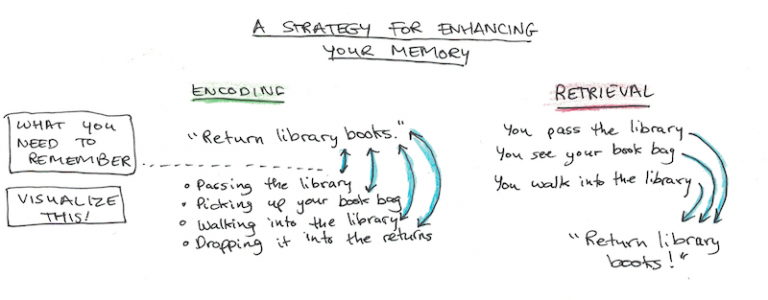 A STRATEGY FOR ENHANCING
YOUR MEMORY
ENCODING
WHAT YOU
NEED TO
REMEMBER
"Return library books."
VISUALIZE
THIS!
• Passing the library
• Picking up your book bag
• Walking into the library
• Dropping it into the returns
RETRIEVAL
You pass the library
You see your book bag
You walk into the library
"Return library
books!"